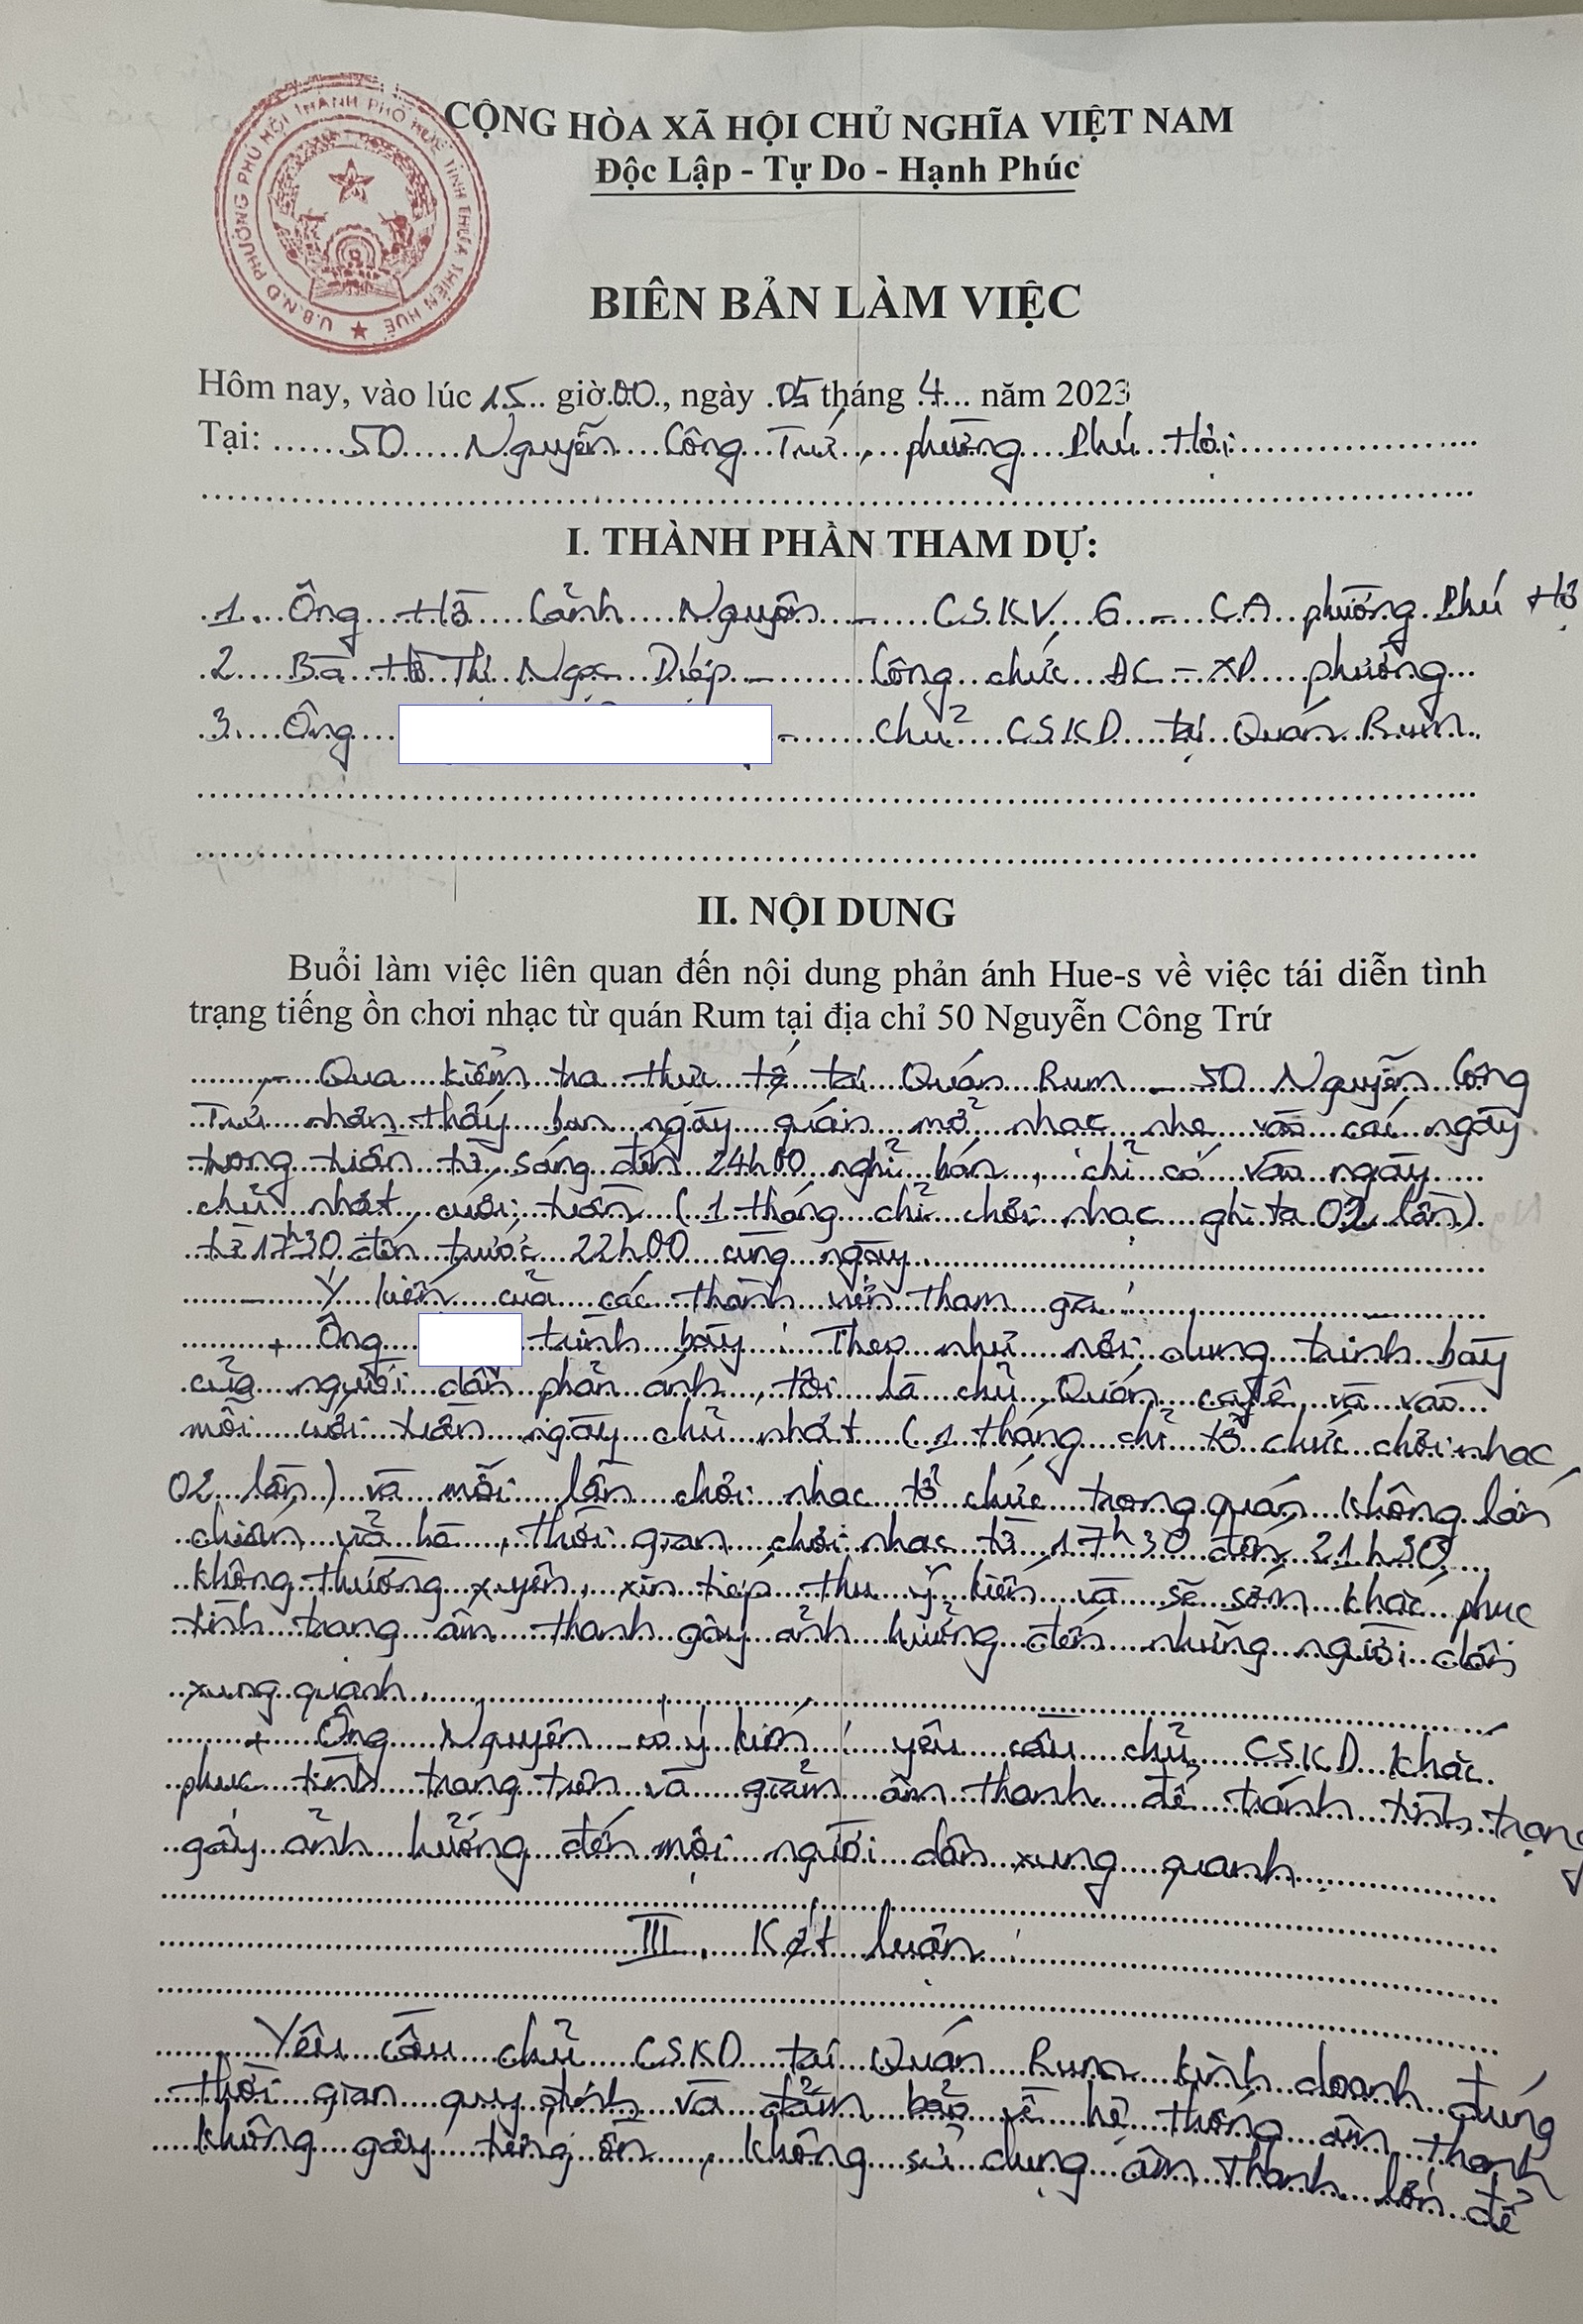 U.B.N.D PHƯỜNG PHÚ HỘI THÀNH PHỐ HUẾ TỈNH THỪA THIÊN HUẾ
CỘNG HÒA XÃ HỘI CHỦ NGHĨA VIỆT NAM
Độc Lập - Tự Do - Hạnh Phúc
BIÊN BẢN LÀM VIỆC
Hôm nay, vào lúc 15 giờ 00, ngày 05 tháng 4 năm 2023
Tại: 50 Nguyễn Công Trứ, phường Phú Hội
I. THÀNH PHẦN THAM DỰ:
1. Ông Hồ Cảnh Nguyên - CSKV 6 - CA phường Phú Hộ
2. Bà Hồ Thị Ngọc Diệp - Công chức ĐC - XD phường
3. Ông - chủ CSKD tại Quán Rum.
II. NỘI DUNG
Buổi làm việc liên quan đến nội dung phản ánh Hue-s về việc tái diễn tình
trạng tiếng ồn chơi nhạc từ quán Rum tại địa chỉ 50 Nguyễn Công Trứ
- Qua kiểm tra thực tế tại Quán Rum - 50 Nguyễn Công
Trứ nhận thấy ban ngày quán mở nhạc nhẹ và các ngày
trong tuần từ sáng đến 24h00 nghỉ bán, chỉ có vào ngày
chủ nhật cuối tuần (1 tháng chỉ chơi nhạc ghi ta 02 lần)
từ 17h30 đến trước 22h00 cùng ngày.
- Ý kiến của các thành viên tham gia:
+ Ông trình bày: Theo như nội dung trình bày
của người dân phản ánh, tôi là chủ Quán cafe và vào
mỗi cuối tuần ngày chủ nhật (1 tháng chỉ tổ chức chơi nhạc
02 lần) và mỗi lần chơi nhạc tổ chức trong quán không lấn
chiếm vỉa hè, thời gian chơi nhạc từ 17h30 đến 21h30
không thường xuyên, xin tiếp thu ý kiến và sẽ sớm khắc phục
tình trạng âm thanh gây ảnh hưởng đến những người dân
xung quanh.
+ Ông Nguyên có ý kiến: yêu cầu chủ CSKD khắc
phục tình trạng trên và giảm âm thanh để tránh tình trạng
gây ảnh hưởng đến mọi người dân xung quanh.
III. Kết luận:
Yêu cầu chủ CSKD tại Quán Rum kinh doanh đúng
thời gian quy định và đảm bảo về hệ thống âm thanh
không gây tiếng ồn, không sử dụng âm thanh lớn để